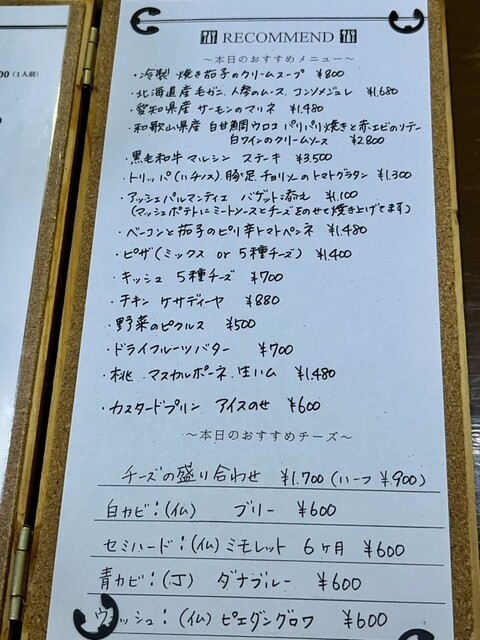 00(1人前)
RECOMMEND
～本日のおすすめメニュー～
・冷製 焼き茄子のクリームスープ ¥800
・北海道産毛ガニ、人参のムース、コンソメジュレ ¥1,680
・愛知県産 サーモンのマリネ ¥1,480
・和歌山県産 白甘鯛ウロコパリパリ焼きと赤エビのソテー
白ワインのクリームソース ¥2,800
・黒毛和牛 マルシン ステーキ ¥3,500
・トリッパ(ハチノス)、豚足、チョリソーのトマトグラタン ¥1,300
・アッシェパルマンティエ バゲット添え ¥1,100
(マッシュポテトにミートソースとチーズをのせて焼き上げてます)
・ベーコンと茄子のピリ辛トマトペンネ ¥1,480
・ピザ(ミックス or 5種チーズ) ¥1,400
・キッシュ 5種チーズ ¥700
・チキン ケサディーヤ ¥880
・野菜のピクルス ¥500
・ドライフルーツバター ¥700
・桃、マスカルポーネ、生ハム ¥1,480
・カスタードプリン アイスのせ ¥600
～本日のおすすめチーズ～
チーズの盛り合わせ ¥1,700(ハーフ ¥900)
白カビ:(仏) ブリー ¥600
セミハード:(仏)ミモレット 6ヶ月 ¥600
青カビ:(丁) ダナブルー ¥600
ウォッシュ:(仏)ピエダングロワ ¥600